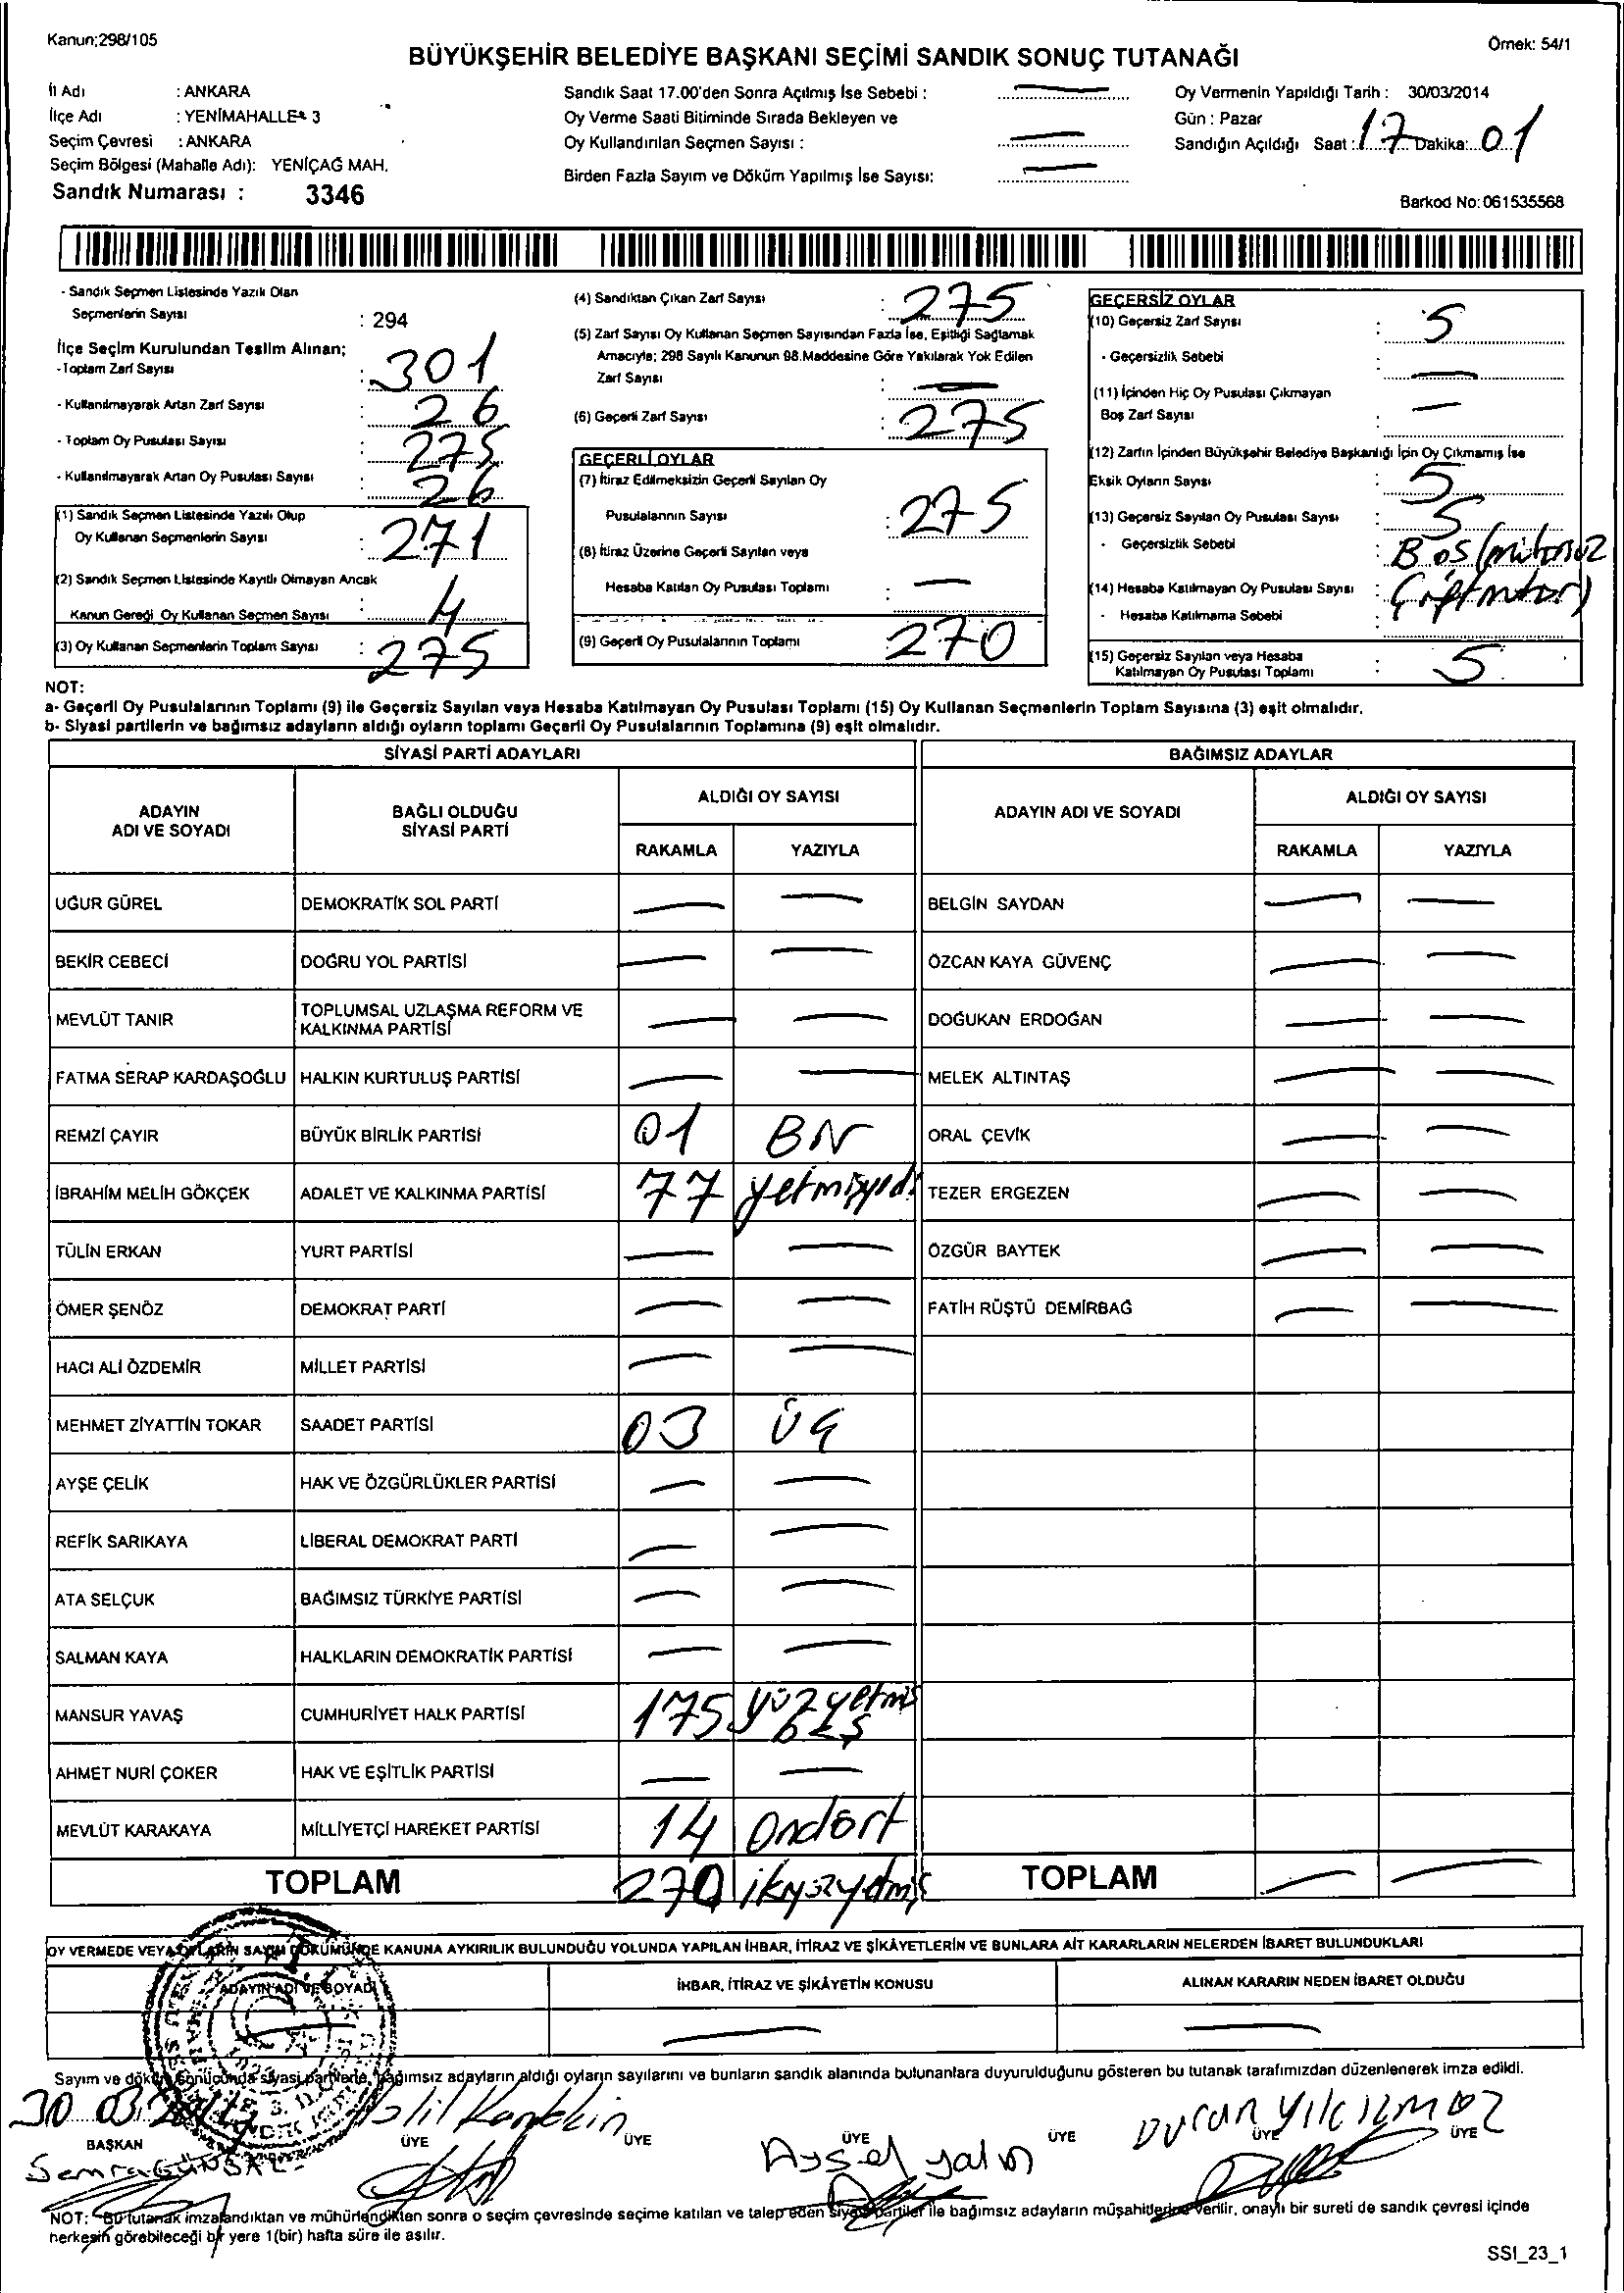 Kanun;298/105
Örnek: 54/1
BÜYÜKŞEHİR BELEDİYE BAŞKANI SEÇİMİ SANDIK SONUÇ TUTANAĞI
İl Adı : ANKARA
İlçe Adı : YENİMAHALLE 3
Seçim Çevresi : ANKARA
Seçim Bölgesi (Mahalle Adı): YENİÇAĞ MAH.
Sandık Numarası : 3346
Sandık Saat 17.00'den Sonra Açılmış İse Sebebi : —
Oy Verme Saati Bitiminde Sırada Bekleyen ve
Oy Kullandırılan Seçmen Sayısı : —
Birden Fazla Sayım ve Döküm Yapılmış İse Sayısı: —
Oy Vermenin Yapıldığı Tarih : 30/03/2014
Gün : Pazar
Sandığın Açıldığı Saat : 17 Dakika: 01
Barkod No: 061535568
- Sandık Seçmen Listesinde Yazılı Olan
Seçmenlerin Sayısı : 294
İlçe Seçim Kurulundan Teslim Alınan;
-Toplam Zarf Sayısı : 301
- Kullanılmayarak Artan Zarf Sayısı : 26
- Toplam Oy Pusulası Sayısı : 275
- Kullanılmayarak Artan Oy Pusulası Sayısı : 26
(1) Sandık Seçmen Listesinde Yazılı Olup
Oy Kullanan Seçmenlerin Sayısı : 271
(2) Sandık Seçmen Listesinde Kayıtlı Olmayan Ancak
Kanun Gereği Oy Kullanan Seçmen Sayısı : 4
(3) Oy Kullanan Seçmenlerin Toplam Sayısı : 275
(4) Sandıktan Çıkan Zarf Sayısı : 275
(5) Zarf Sayısı Oy Kullanan Seçmen Sayısından Fazla İse, Eşitliği Sağlamak
Amacıyla; 298 Sayılı Kanunun 98.Maddesine Göre Yakılarak Yok Edilen
Zarf Sayısı : —
(6) Geçerli Zarf Sayısı : 275
GEÇERLİ OYLAR
(7) İtiraz Edilmeksizin Geçerli Sayılan Oy
Pusulalarının Sayısı : 275
(8) İtiraz Üzerine Geçerli Sayılan veya
Hesaba Katılan Oy Pusulası Toplamı : —
(9) Geçerli Oy Pusulalarının Toplamı : 270
GEÇERSİZ OYLAR
(10) Geçersiz Zarf Sayısı : 5
- Geçersizlik Sebebi : —
(11) İçinden Hiç Oy Pusulası Çıkmayan
Boş Zarf Sayısı : —
(12) Zarfın İçinden Büyükşehir Belediye Başkanlığı İçin Oy Çıkmamış İse
Eksik Oyların Sayısı : 5
(13) Geçersiz Sayılan Oy Pusulası Sayısı : 5
- Geçersizlik Sebebi : Boş
(14) Hesaba Katılmayan Oy Pusulası Sayısı :
- Hesaba Katılmama Sebebi :
(15) Geçersiz Sayılan veya Hesaba
Katılmayan Oy Pusulası Toplamı : 5
NOT:
a- Geçerli Oy Pusulalarının Toplamı (9) ile Geçersiz Sayılan veya Hesaba Katılmayan Oy Pusulası Toplamı (15) Oy Kullanan Seçmenlerin Toplam Sayısına (3) eşit olmalıdır.
b- Siyasi partilerin ve bağımsız adayların aldığı oyların toplamı Geçerli Oy Pusulalarının Toplamına (9) eşit olmalıdır.
SİYASİ PARTİ ADAYLARI BAĞIMSIZ ADAYLAR
ADAYIN ADI VE SOYADI BAĞLI OLDUĞU SİYASİ PARTİ ALDIĞI OY SAYISI ADAYIN ADI VE SOYADI ALDIĞI OY SAYISI
RAKAMLA YAZIYLA RAKAMLA YAZIYLA
UĞUR GÜREL DEMOKRATİK SOL PARTİ — — BELGİN SAYDAN — —
BEKİR CEBECİ DOĞRU YOL PARTİSİ — — ÖZCAN KAYA GÜVENÇ — —
MEVLÜT TANIR TOPLUMSAL UZLAŞMA REFORM VE KALKINMA PARTİSİ — — DOĞUKAN ERDOĞAN — —
FATMA SERAP KARDAŞOĞLU HALKIN KURTULUŞ PARTİSİ — — MELEK ALTINTAŞ — —
REMZİ ÇAYIR BÜYÜK BİRLİK PARTİSİ 01 BİR ORAL ÇEVİK — —
İBRAHİM MELİH GÖKÇEK ADALET VE KALKINMA PARTİSİ 77 yetmişyedi TEZER ERGEZEN — —
TÜLİN ERKAN YURT PARTİSİ — — ÖZGÜR BAYTEK — —
ÖMER ŞENÖZ DEMOKRAT PARTİ — — FATİH RÜŞTÜ DEMİRBAĞ — —
HACI ALİ ÖZDEMİR MİLLET PARTİSİ — —
MEHMET ZİYATTİN TOKAR SAADET PARTİSİ 03 ÜÇ
AYŞE ÇELİK HAK VE ÖZGÜRLÜKLER PARTİSİ — —
REFİK SARIKAYA LİBERAL DEMOKRAT PARTİ — —
ATA SELÇUK BAĞIMSIZ TÜRKİYE PARTİSİ — —
SALMAN KAYA HALKLARIN DEMOKRATİK PARTİSİ — —
MANSUR YAVAŞ CUMHURİYET HALK PARTİSİ 175 yüzyetmiş beş
AHMET NURİ ÇOKER HAK VE EŞİTLİK PARTİSİ — —
MEVLÜT KARAKAYA MİLLİYETÇİ HAREKET PARTİSİ 14 Ondört
TOPLAM 270 ikiyüzyetmiş TOPLAM — —
OY VERMEDE VEYA OYLARIN SAYIM DÖKÜMÜNDE KANUNA AYKIRILIK BULUNDUĞU YOLUNDA YAPILAN İHBAR, İTİRAZ VE ŞİKÂYETLERİN VE BUNLARA AİT KARARLARIN NELERDEN İBARET BULUNDUKLARI
ADAYIN ADI VE SOYADI İHBAR, İTİRAZ VE ŞİKÂYETİN KONUSU ALINAN KARARIN NEDEN İBARET OLDUĞU
— — —
Sayım ve döküm sonucunda siyasi partilerle, bağımsız adayların aldığı oyların sayılarını ve bunların sandık alanında bulunanlara duyurulduğunu gösteren bu tutanak tarafımızdan düzenlenerek imza edildi.
30 03
Halil Aysel yalın Duran yılcılmaz
BAŞKAN ÜYE ÜYE ÜYE ÜYE ÜYE ÜYE
Semra GÜNSAL
NOT: Bu tutanak imzalandıktan ve mühürlendikten sonra o seçim çevresinde seçime katılan ve talep eden siyasi partiler ile bağımsız adayların müşahitlerine verilir, onaylı bir sureti de sandık çevresi içinde
herkesin görebileceği bir yere 1(bir) hafta süre ile asılır.
SSI_23_1